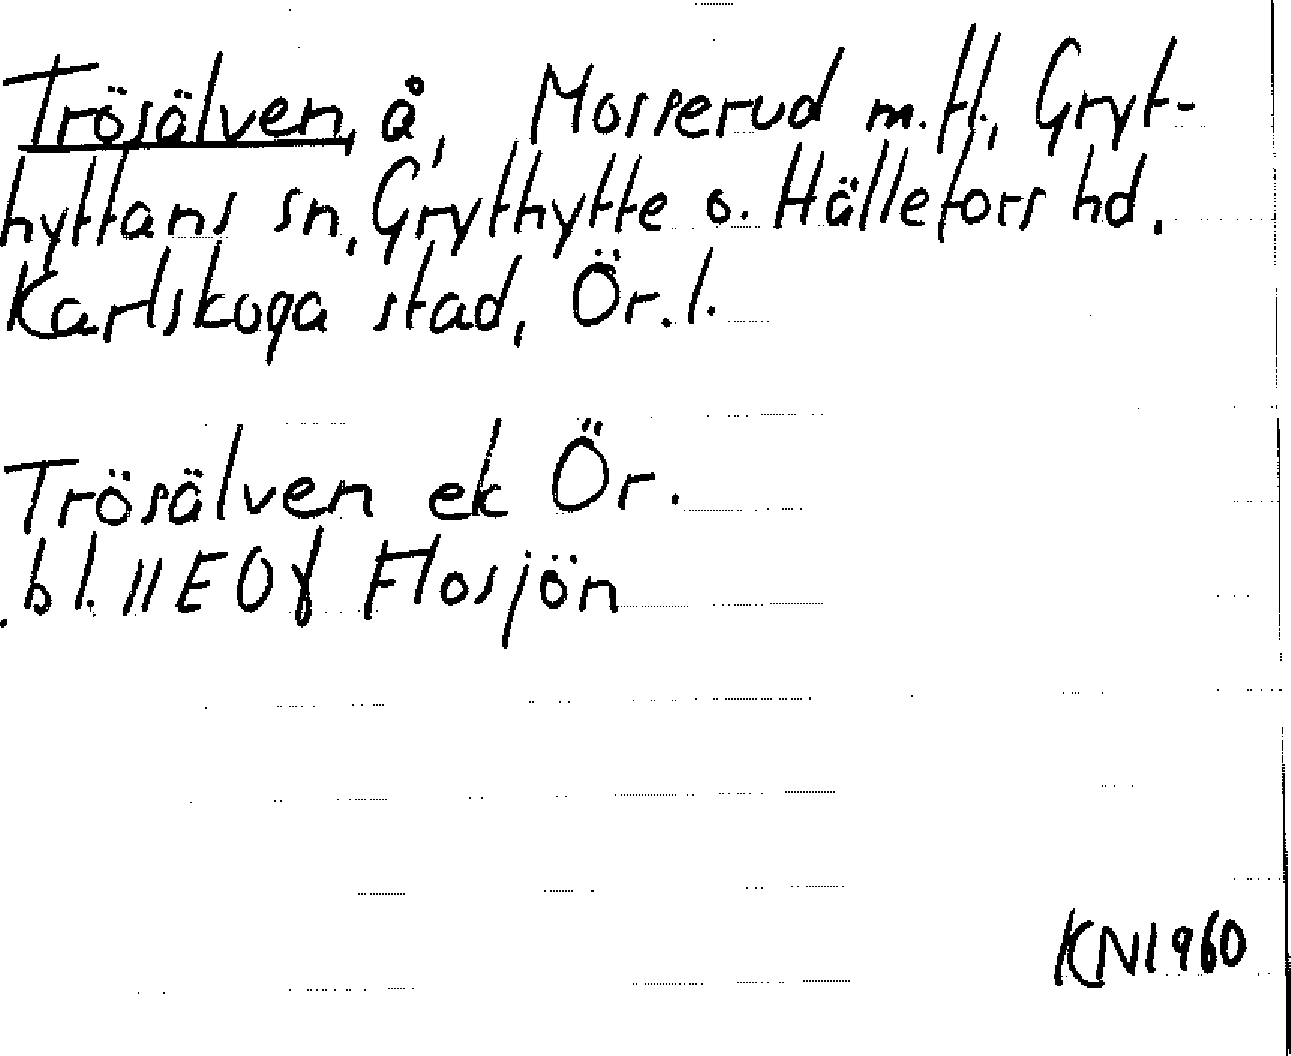 Trösälven, å, Mosserud m.fl., Gryt-
hyttans sn, Grythytte o. Hällefors hd.
Karlskoga stad, Ör.l.
Trösälven ek Ör.
bl. 11E0f Flosjön
KN1960